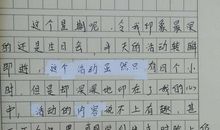 这个星期呢,令我印象最深
的还是生日会,半天的活动转瞬
即逝,这个活动虽然只有四个小
时,但是却深深地印在了我的心
中,活动的内容说不上有趣,甚